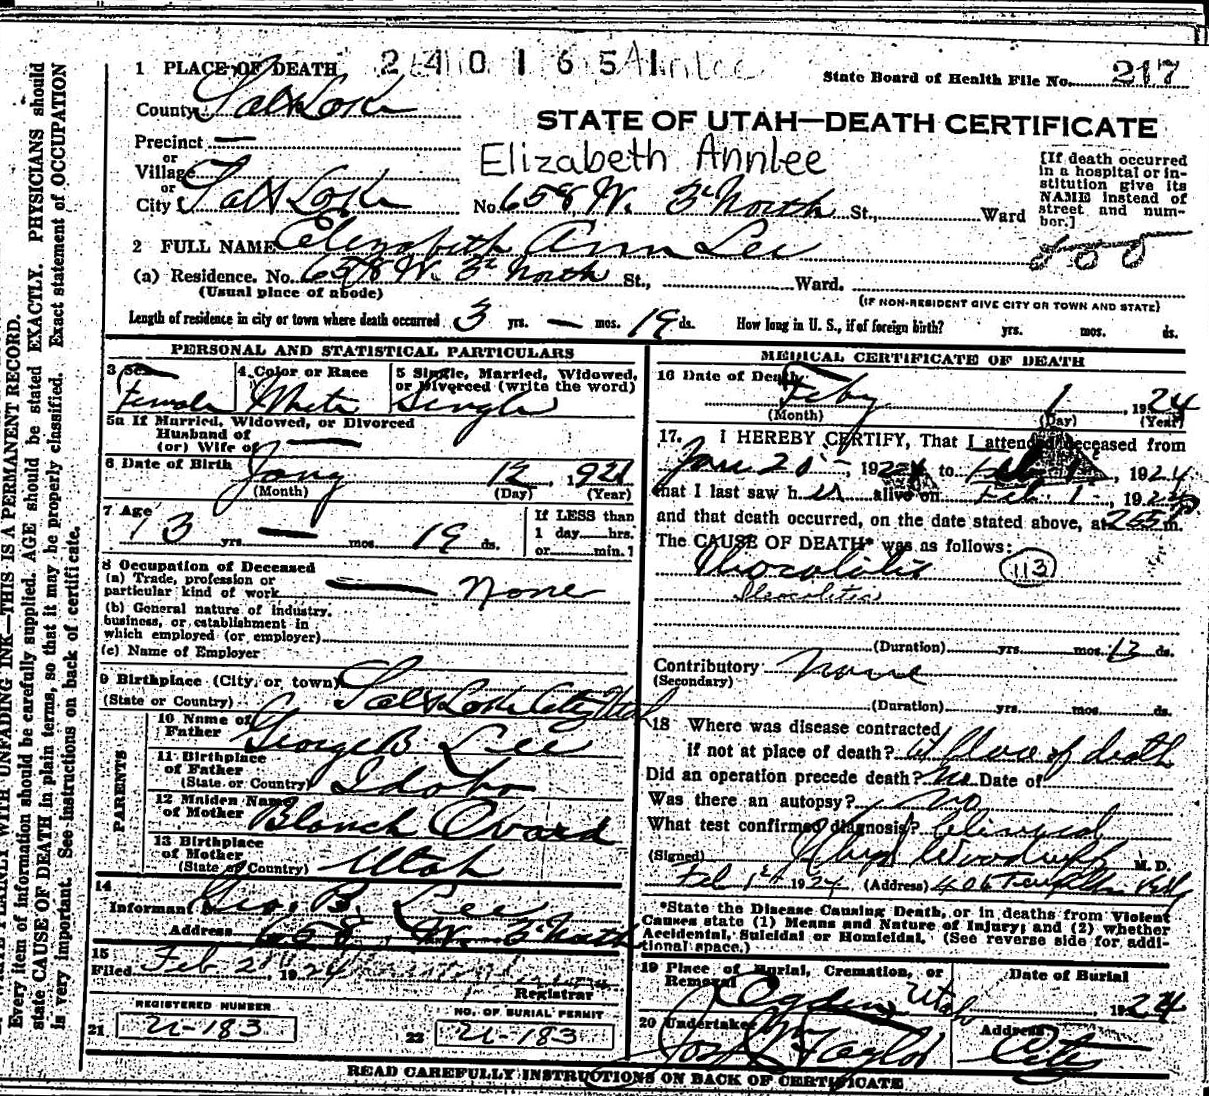 1 PLACE OF DEATH 2401651 Annlee State Board of Health File No. 217
County Salt Lake
STATE OF UTAH—DEATH CERTIFICATE
Precinct —
or
Village
Elizabeth Annlee
[If death occurred in a hospital or institution give its NAME instead of street and number.]
or
City Salt Lake No. 658 W. 3d North St., Ward
2 FULL NAME Elizabeth Ann Lee
(a) Residence. No. 658 W. 3d North St., Ward.
(Usual place of abode) (IF NON-RESIDENT GIVE CITY OR TOWN AND STATE)
Length of residence in city or town where death occurred 3 yrs. — mos. 19 ds. How long in U. S., if of foreign birth? yrs. mos. ds.
PERSONAL AND STATISTICAL PARTICULARS
3 Sex 4 Color or Race 5 Single, Married, Widowed, or Divorced (write the word)
Female White Single
5a If Married, Widowed, or Divorced
Husband of
(or) Wife of —
6 Date of Birth Jany 12, 1921
(Month) (Day) (Year)
7 Age 3 yrs. — mos. 19 ds. If LESS than 1 day hrs. or min.?
8 Occupation of Deceased
(a) Trade, profession or particular kind of work — None
(b) General nature of industry, business, or establishment in which employed (or employer)
(c) Name of Employer
9 Birthplace (City, or town) Salt Lake City Utah
(State or Country)
PARENTS
10 Name of Father George B. Lee
11 Birthplace of Father (State or Country) Idaho
12 Maiden Name of Mother Blanch Ovard
13 Birthplace of Mother (State or Country) Utah
14
Informant Geo. B. Lee
Address 658 W. 3 North
15
Filed Feb 2, 1924
Registrar
REGISTERED NUMBER NO. OF BURIAL PERMIT
21 U-183 22 U-183
MEDICAL CERTIFICATE OF DEATH
16 Date of Death Feby 1, 1924
(Month) (Day) (Year)
17. I HEREBY CERTIFY, That I attended deceased from
Jan 20, 192 to Feb 1, 1924
that I last saw her alive on Feb 1, 192
and that death occurred, on the date stated above, at m.
The CAUSE OF DEATH* was as follows:
Ileocolitis 113
Ileocolitis
(Duration) yrs. mos. 13 ds.
Contributory None
(Secondary)
(Duration) yrs. mos. ds.
18 Where was disease contracted
if not at place of death? at place of death
Did an operation precede death? No Date of
Was there an autopsy? No
What test confirmed diagnosis? Clinical
(Signed) Woodruff M. D.
Feb 1st 1924 (Address) 406
*State the Disease Causing Death, or in deaths from Violent
Causes state (1) Means and Nature of Injury; and (2) whether
Accidental, Suicidal or Homicidal. (See reverse side for additional space.)
19 Place of Burial, Cremation, or Removal Date of Burial
Ogden, Utah 1924
20 Undertaker Address
Jos Wm Taylor City
READ CAREFULLY INSTRUCTIONS ON BACK OF CERTIFICATE
WRITE PLAINLY WITH UNFADING INK—THIS IS A PERMANENT RECORD.
Every item of information should be carefully supplied. AGE should be stated EXACTLY. PHYSICIANS should
state CAUSE OF DEATH in plain terms, so that it may be properly classified. Exact statement of OCCUPATION
is very important. See instructions on back of certificate.